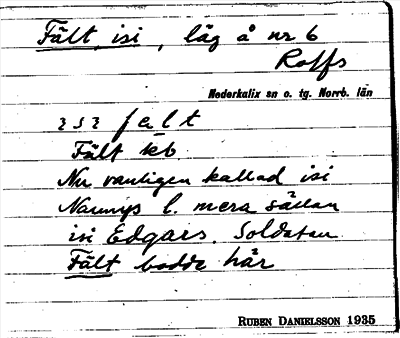 Fält, isi, låg å nr 6
Rolfs
Nederkalix sn o. tg. Norrb. län
ɿsɿ fa l t
Fält kb
Nu vanligen kallad isi
Nannys l. mera sällan
isi Edgars. Soldaten
Fält bodde här
RUBEN DANIELSSON 1935